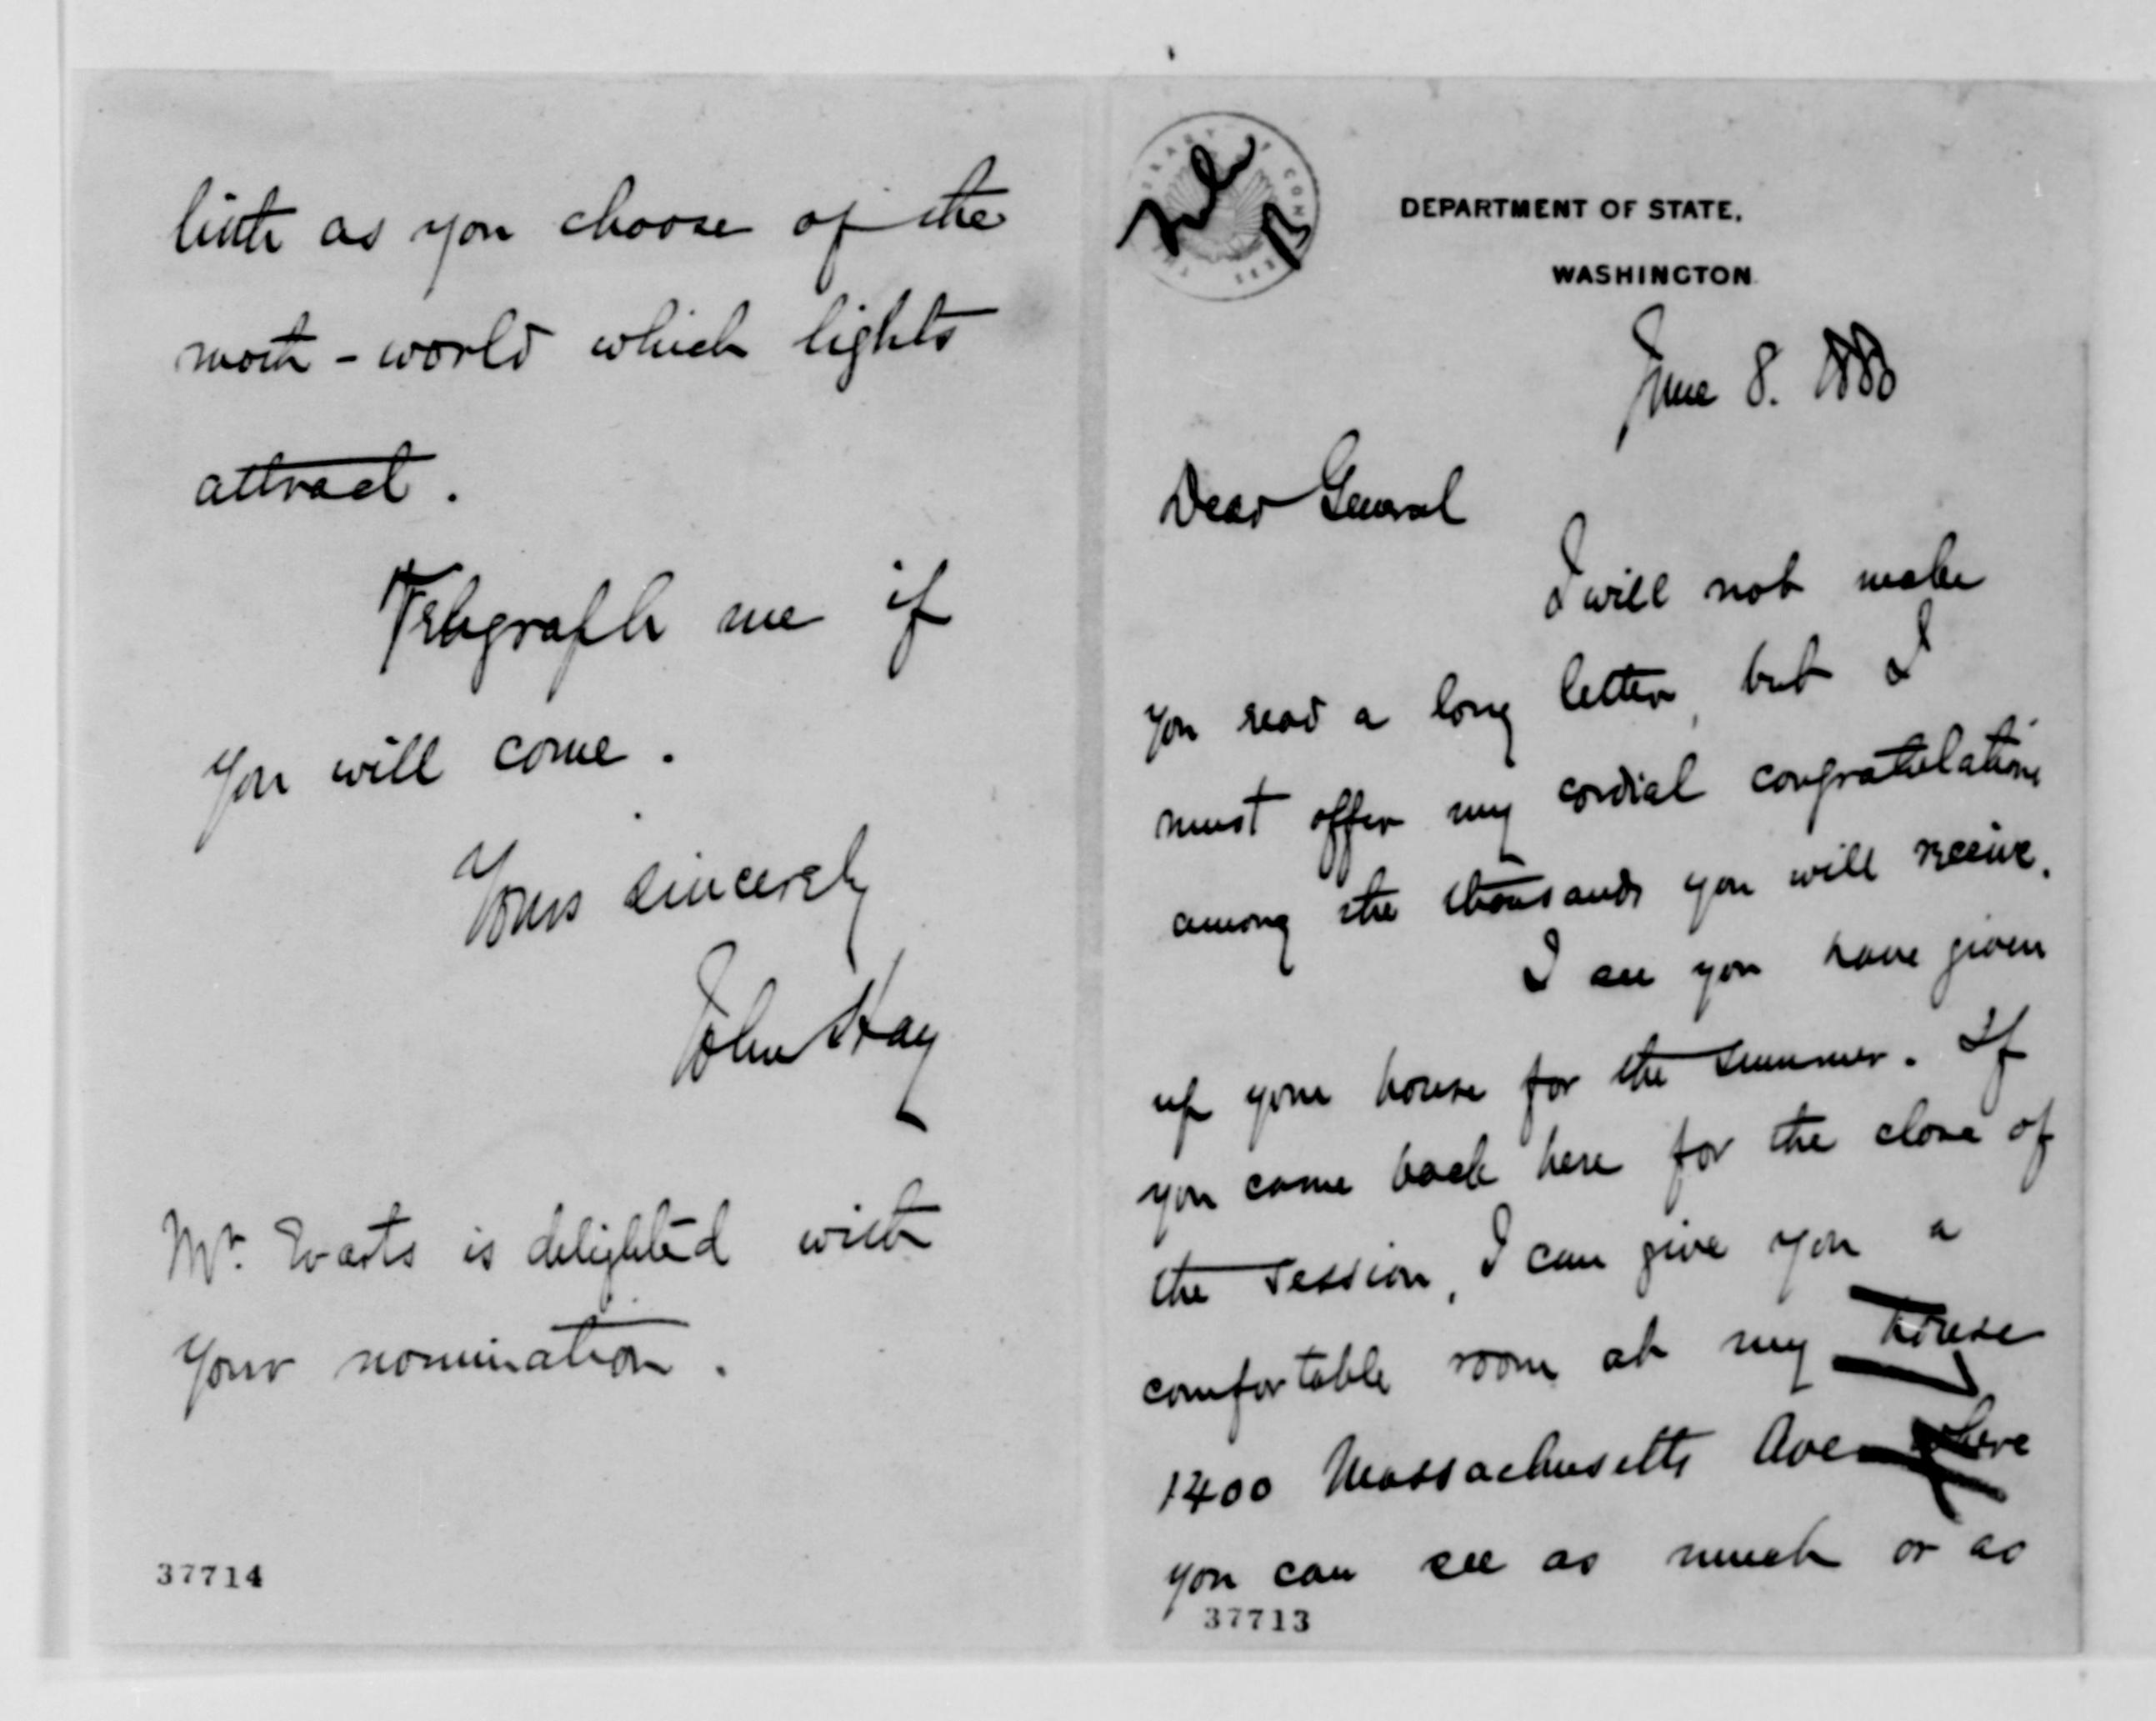 DEPARTMENT OF STATE,
WASHINGTON
June 8. 1880
Dear General
I will not make
you read a long letter, but I
must offer my cordial congratulations
among the thousands you will receive.
I see you have given
up your house for the summer. If
you come back here for the close of
the session, I can give you a
comfortable room at my house
1400 Massachusetts Ave where
you can see as much or as
37713
little as you choose of the
moth - world which lights
attract.
Telegraph me if
you will come.
Yours sincerely
John Hay
Mr. Evarts is delighted with
your nomination.
37714